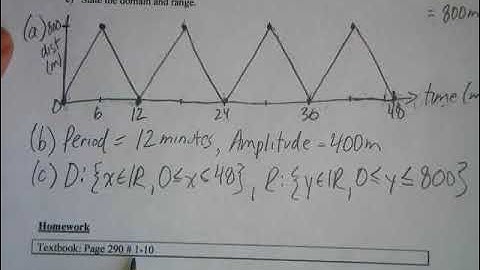 c) State the domain and range.
= 800m
(a) 800
dist
(m)
0 6 12 24 36 48 time
(b) Period = 12 minutes, Amplitude = 400m
(c) D: {x∈IR, 0≤x≤48}, R: {y∈IR, 0≤y≤800}
Homework
Textbook: Page 290 # 1-10